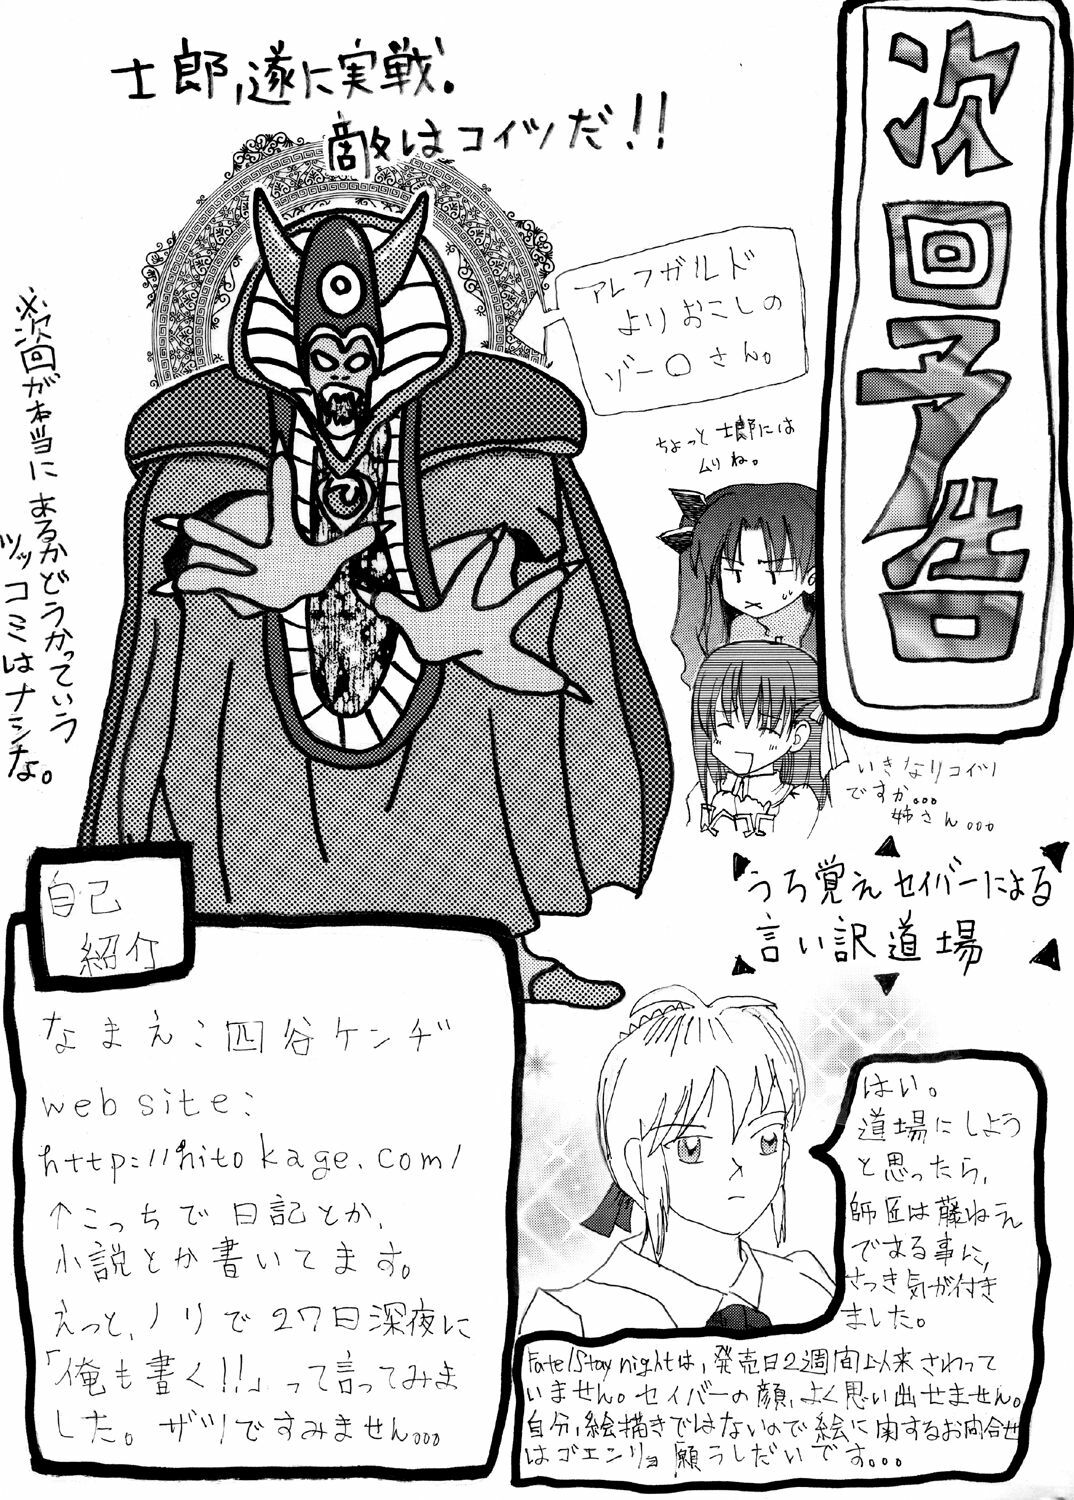 次回予告
士郎,遂に実戦。
敵はコイツだ!!
アレフガルド
よりおこしの
ゾーロさん。
ちょっと士郎には
ムリね。
いきなりコイツ
ですか。。。
姉さん。。。
※次回が本当にあるかどうかっていう
ツッコミはナシな。
うろ覚えセイバーによる
言い訳道場
はい。
道場にしよう
と思ったら,
師匠は藤ねえ
である事に,
さっき気が付き
ました。
Fate/Stay nightは,発売日2週間以来さわって
いません。セイバーの顔,よく思い出せません。
自分,絵描きではないので絵に関するお問合せ
はゴエンリョ願うしだいです。。。
自己
紹介
なまえ:四谷ケンヂ
web site:
http://hitokage.com/
↑こっちで日記とか,
小説とか書いてます。
えっと,ノリで27日深夜に
「俺も書く!!」って言ってみま
した。ザツですみません。。。